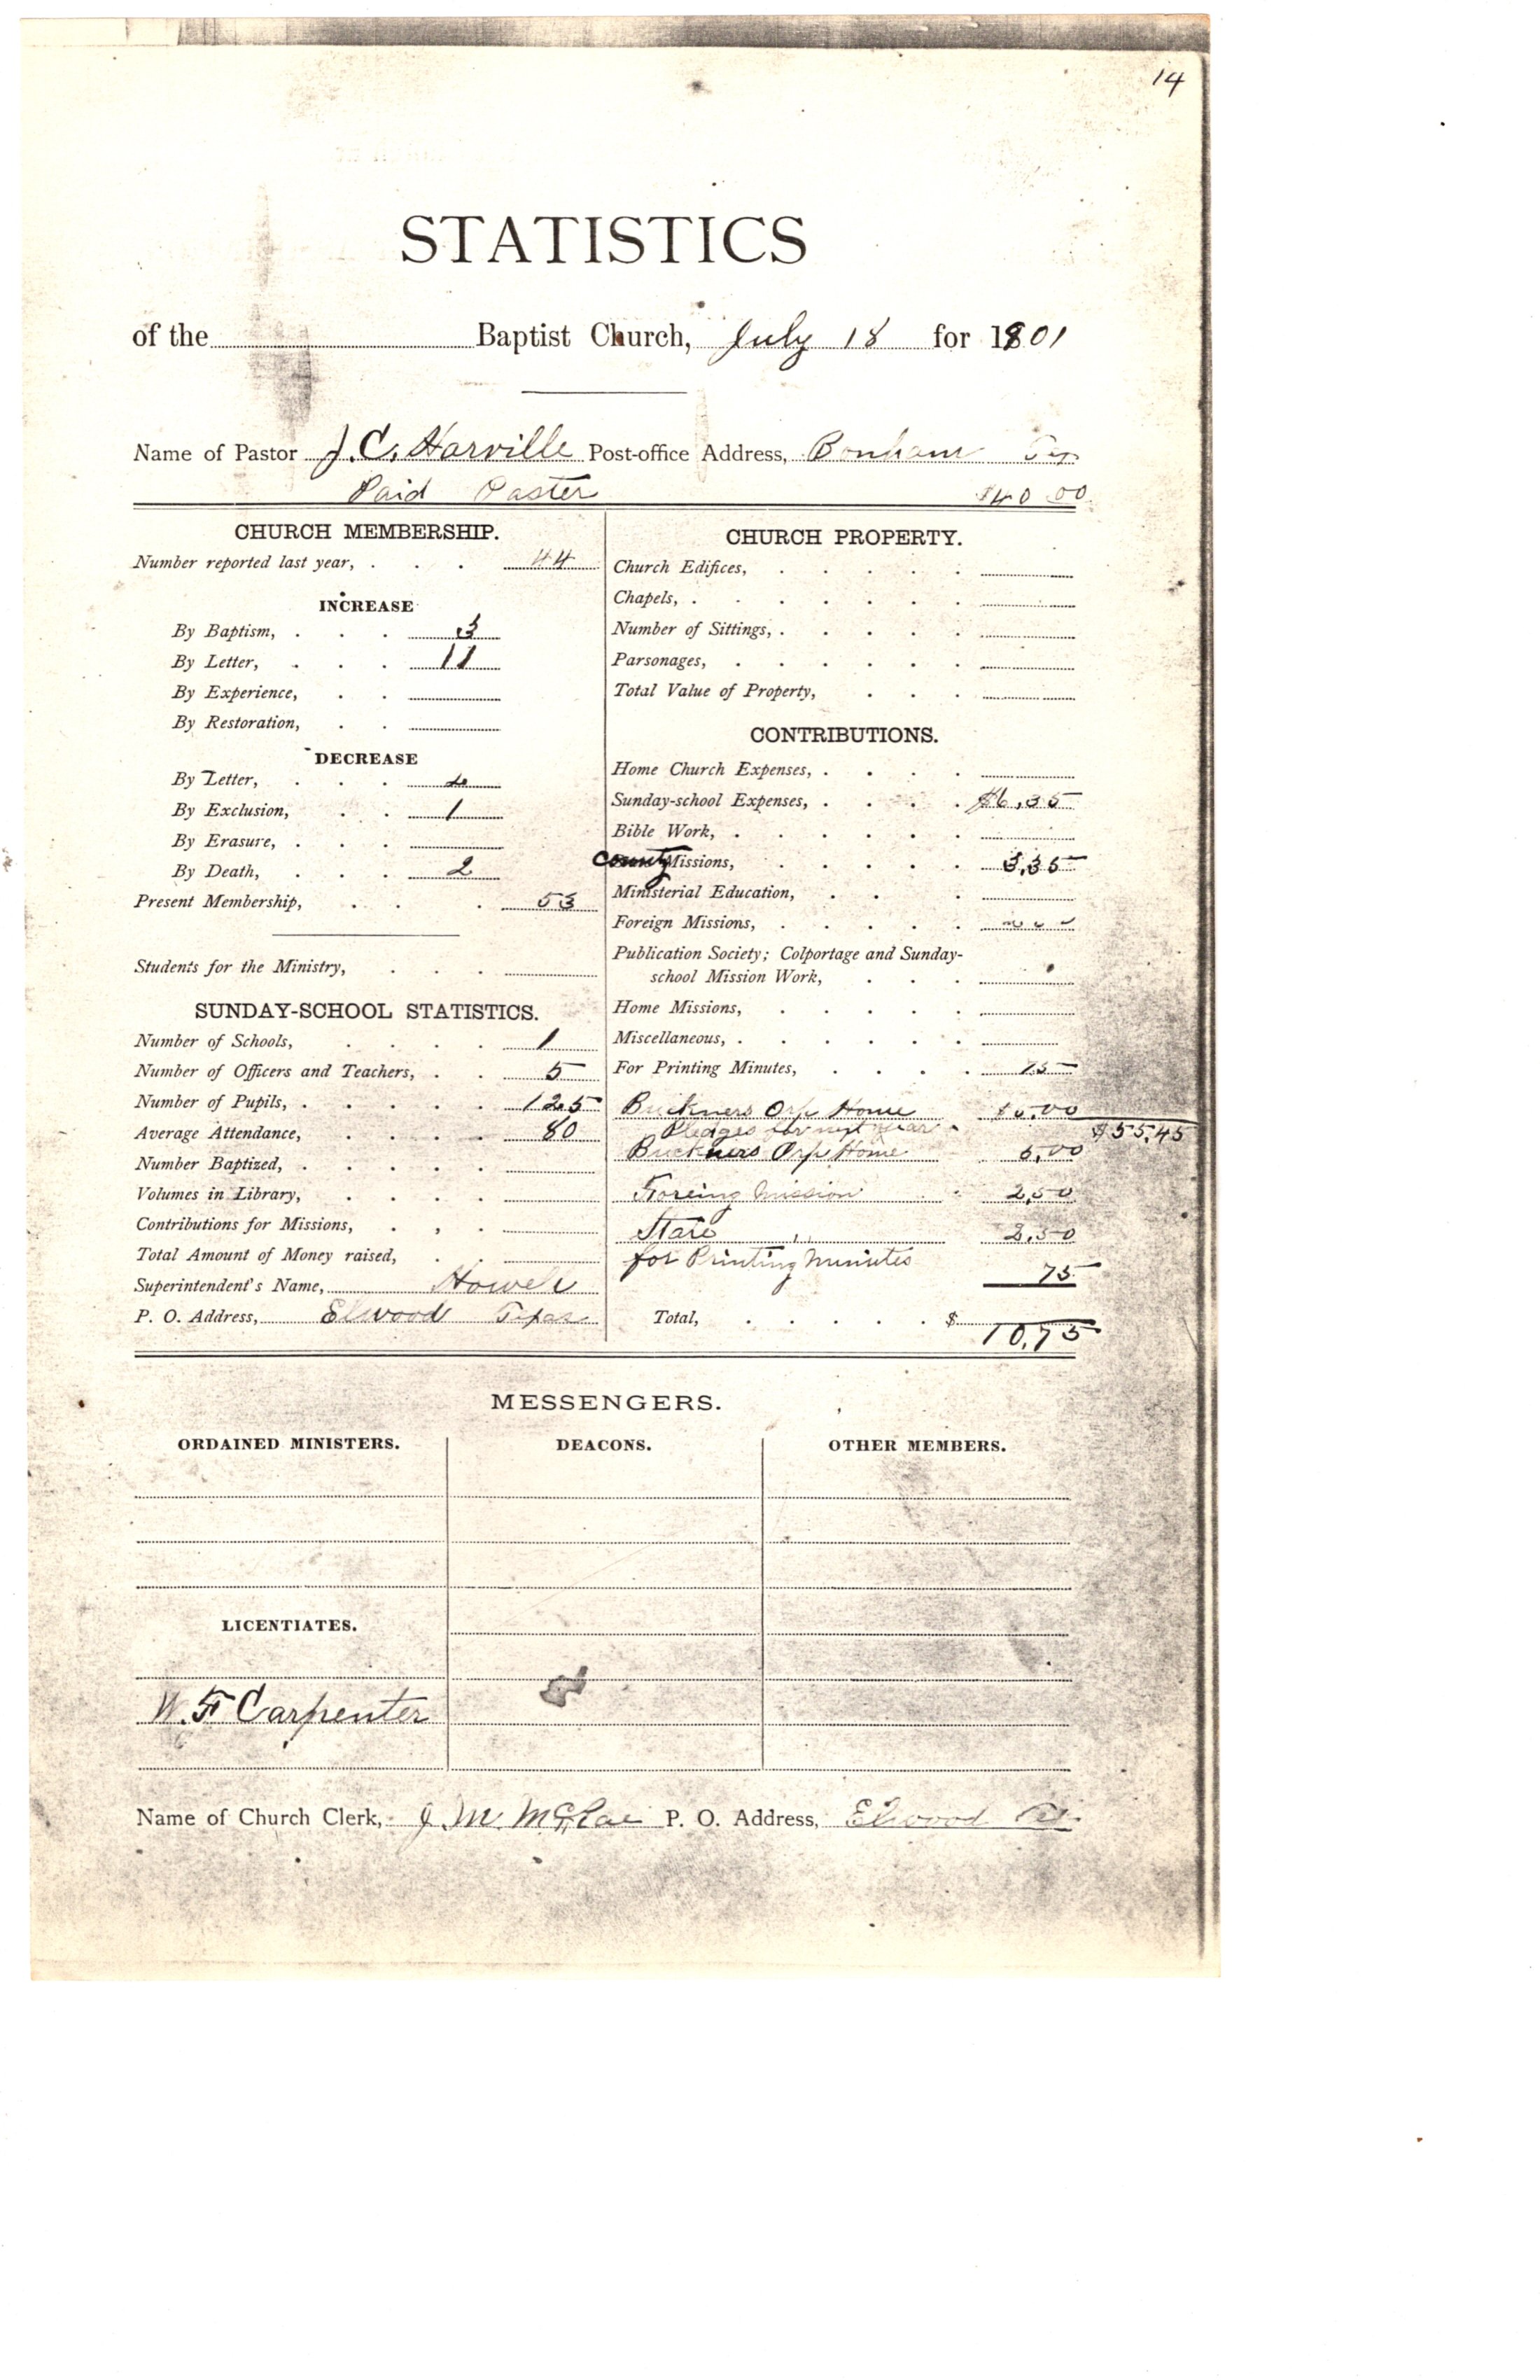 14
STATISTICS
of the Baptist Church, July 18 for 1901
Name of Pastor J. C. Harville Post-office Address, Bonham Tex
Paid Paster $40 00
CHURCH MEMBERSHIP.
Number reported last year, . . . 44
INCREASE
By Baptism, . . . 3
By Letter, . . . 11
By Experience, . .
By Restoration, . .
DECREASE
By Letter, . . .
By Exclusion, . . 1
By Erasure, . . .
By Death, . . . 2
Present Membership, . . . 53
Students for the Ministry, . . .
SUNDAY-SCHOOL STATISTICS.
Number of Schools, . . . . 1
Number of Officers and Teachers, . . 5
Number of Pupils, . . . . . 125
Average Attendance, . . . . 80
Number Baptized, . . . . .
Volumes in Library, . . . .
Contributions for Missions, . , .
Total Amount of Money raised, . .
Superintendent's Name, Howell
P. O. Address, Elwood Texas
CHURCH PROPERTY.
Church Edifices, . . . . .
Chapels, . . . . . . .
Number of Sittings, . . . . .
Parsonages, . . . . . .
Total Value of Property, . . .
CONTRIBUTIONS.
Home Church Expenses, . . . .
Sunday-school Expenses, . . . . $6,35
Bible Work, . . . . . .
County Missions, . . . . . 3,35
Ministerial Education, . . .
Foreign Missions, . . . . .
Publication Society; Colportage and Sunday-
school Mission Work, . . .
Home Missions, . . . . .
Miscellaneous, . . . . . .
For Printing Minutes, . . . . 75
Buckners Orp Home $5.00
$55,45
Pledges for next year
Buckners Orp Home 5,00
Foreing Mission 2,50
State ,, 2,50
for Printing Minutes 75
Total, . . . . . $ 10,75
MESSENGERS.
ORDAINED MINISTERS. DEACONS. OTHER MEMBERS.
LICENTIATES.
W. F Carpenter
Name of Church Clerk, J. M. McRae P. O. Address, Elwood